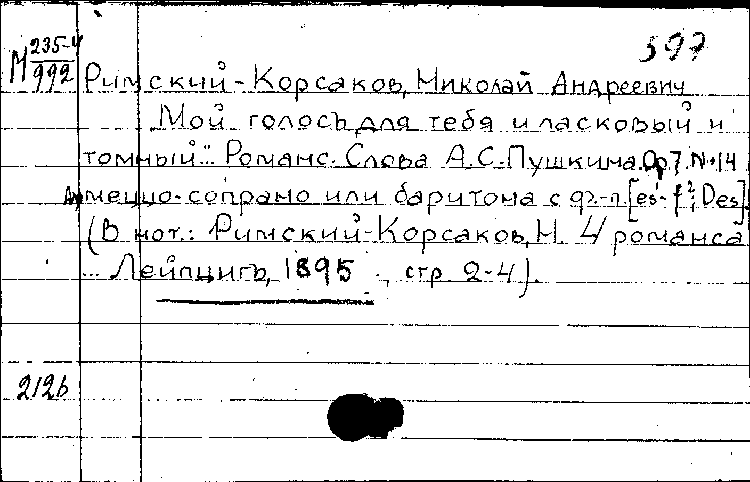 597
М 235-4/992
Римский-Корсаков, Николай Андреевич
Мой голосъ для тебя и ласковый и
томный... Романс. Слова А.С.Пушкина. Op.7. №14
Для меццо-сопрано или баритона с ф.-п. [es¹-f²; Des].
(В нот.: Римский-Корсаков, Н. 4 романса
... Лейпцигъ, 1895, стр. 2-4).
2126